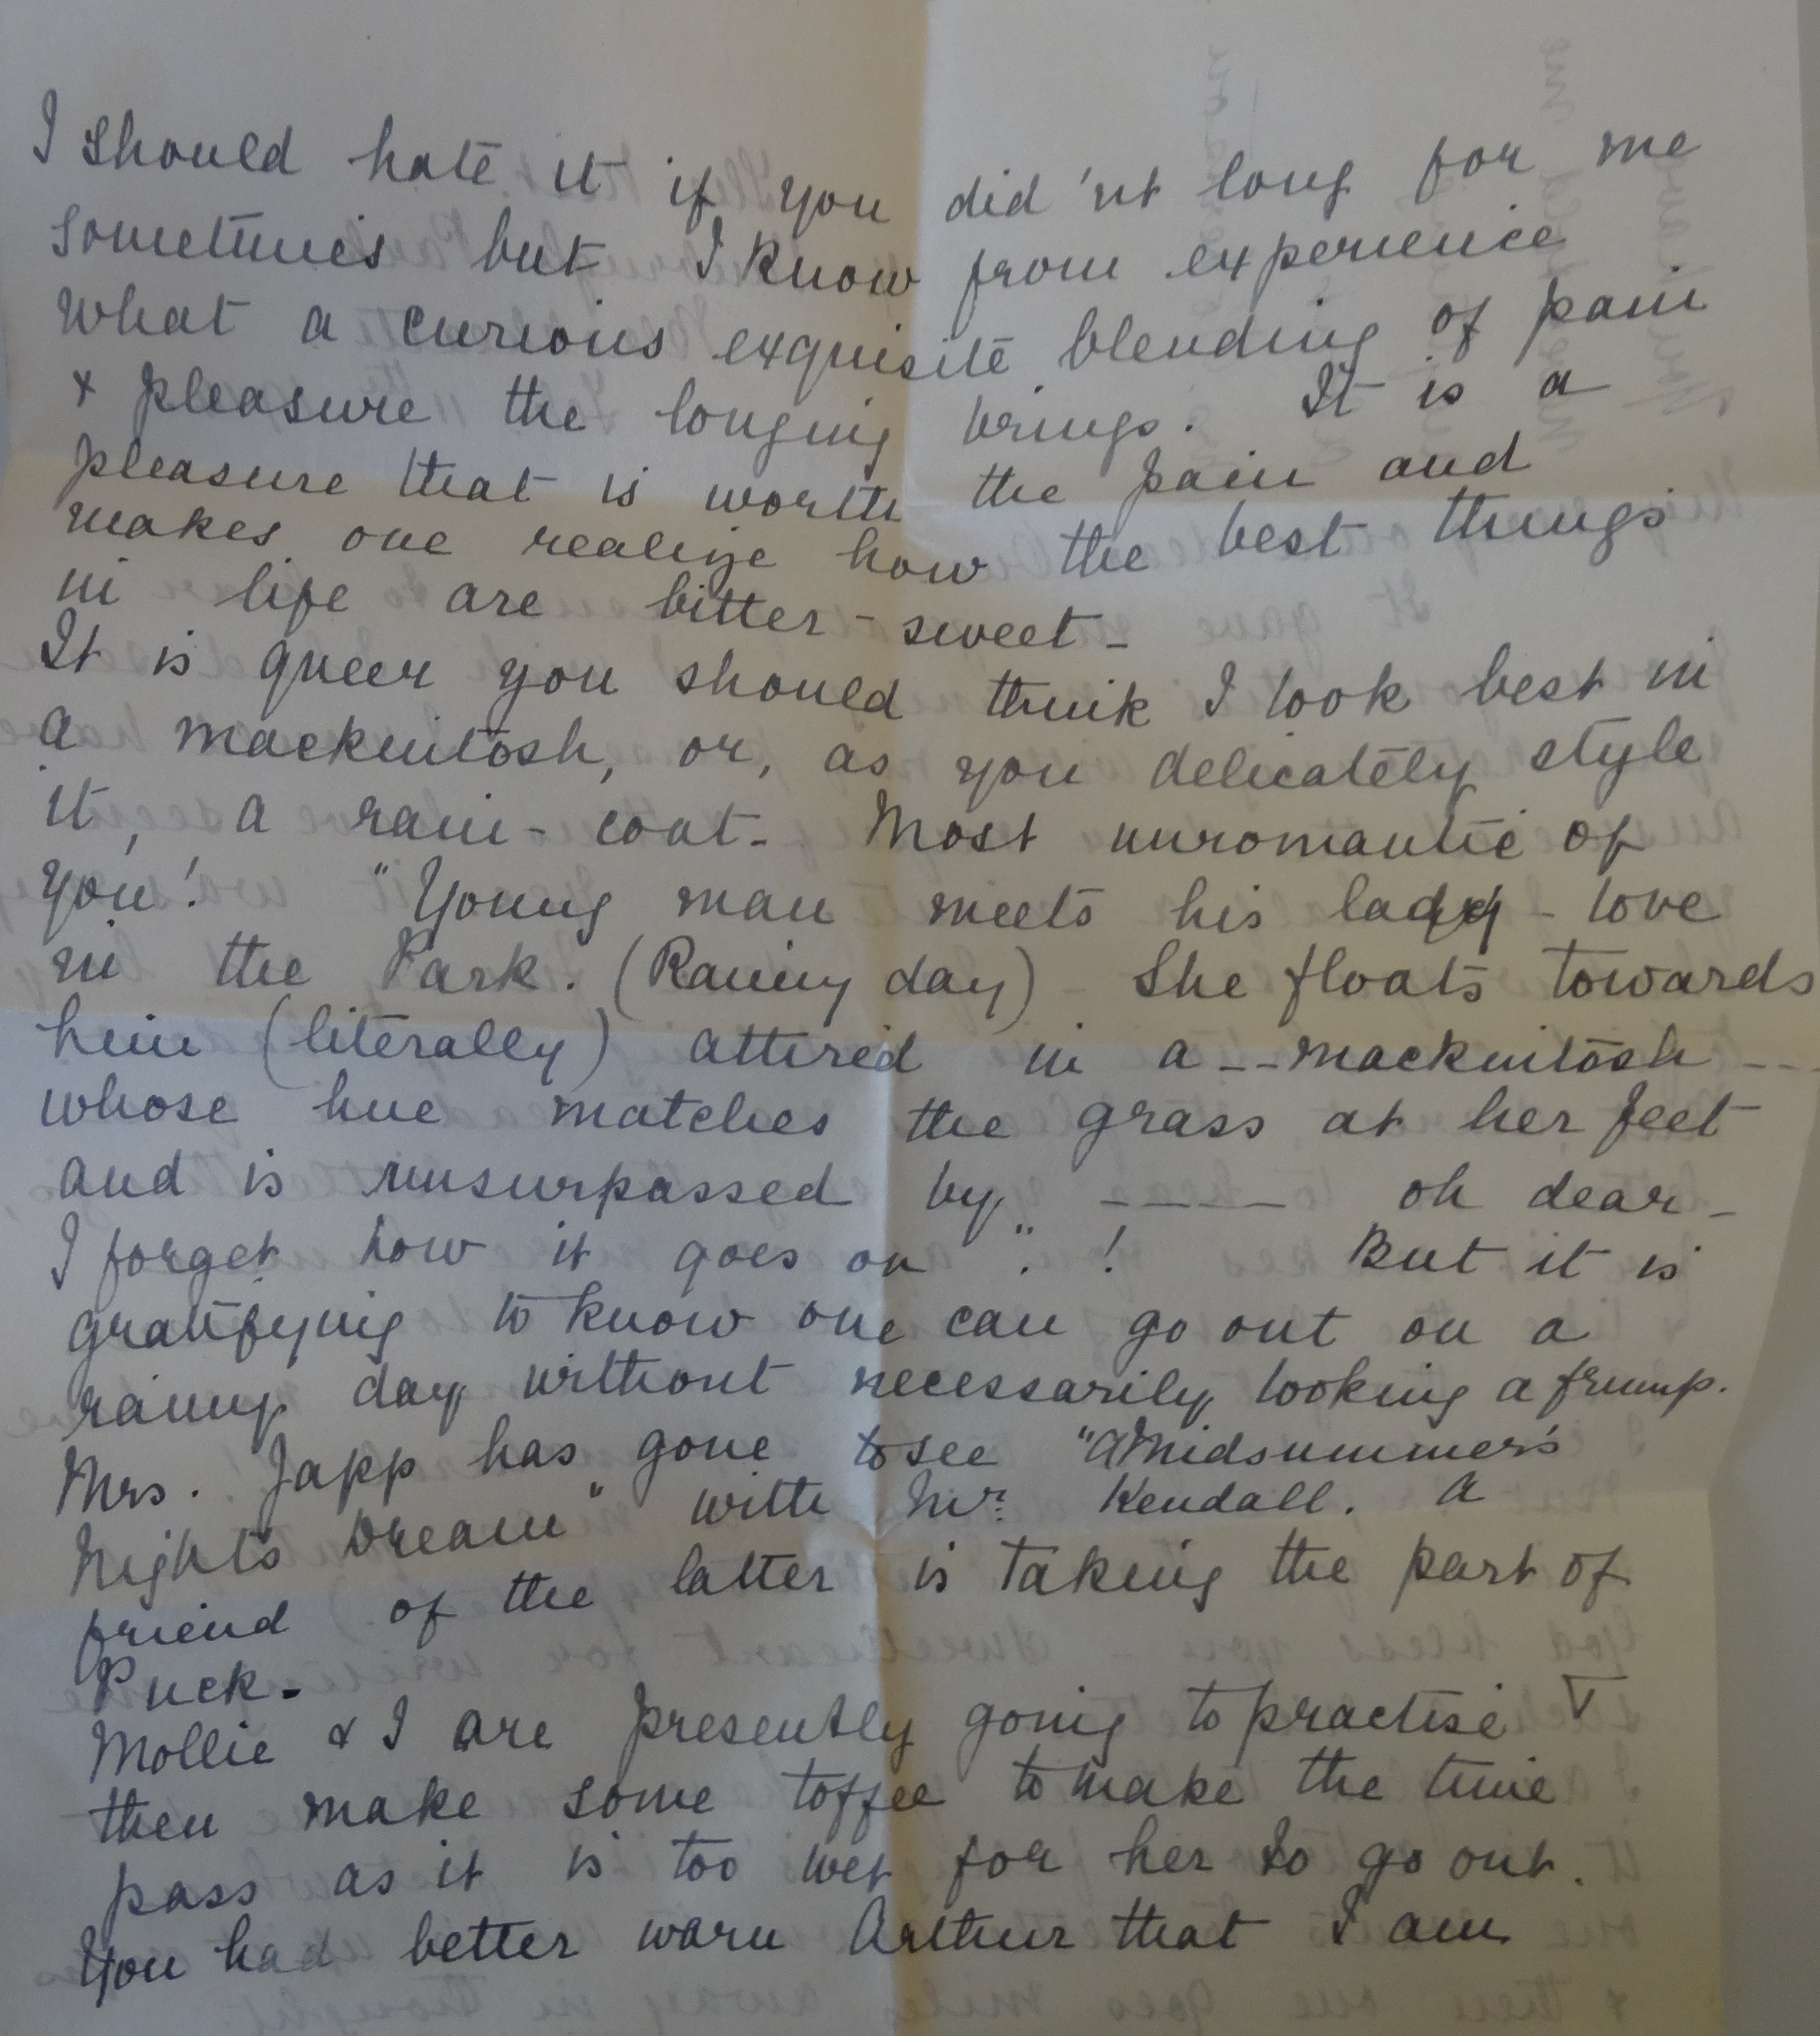 I should hate it if you did'nt long for me
sometimes but I know from experience
what a curious exquisite blending of pain
& pleasure the longing brings. It is a
pleasure that is worth the pain and
makes one realize how the best things
in life are bitter-sweet-
It is queer you should think I look best in
a mackintosh, or, as you delicately style
it, a rain-coat. Most unromantic of
you! "Young man meets his lady-love
in the Park. (Rainy day) She floats towards
him (literally) attired in a -- mackintosh ---
whose hue matches the grass at her feet
and is unsurpassed by ----- oh dear-
I forget how it goes on"! But it is
gratifying to know one can go out on a
rainy day without necessarily looking a frump.
Mrs. Japp has gone to see "A Midsummer's
Night's Dream" with Mr. Kendall. A
friend of the latter is taking the part of
Puck.
Mollie & I are presently going to practise &
then make some toffee to make the time
pass as it is too wet for her to go out.
You had better warn Arthur that I am